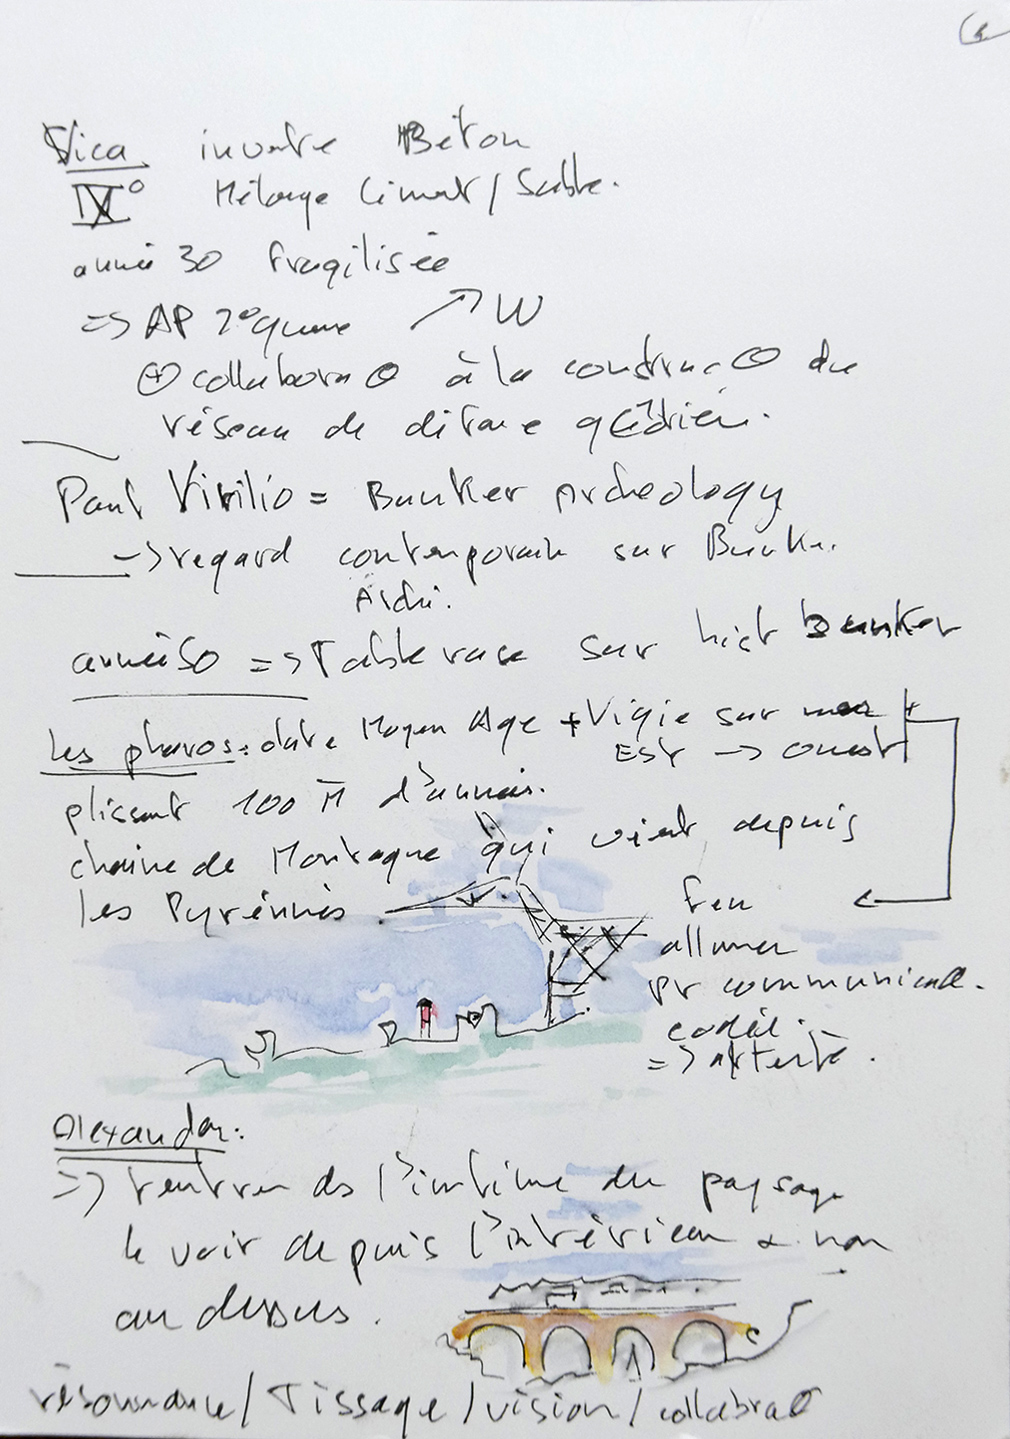 Vica invente Béton
IV° Mélange Ciment / Sable.
année 30 fragilisée
=> AP 2° guerre ↗ W
⊕ collabora⊖ à la construc⊖ du
réseau de défense
Paul Virilio = Bunker Archeology
-> regard contemporain sur Bunker.
Archi.
année 50 => Table rase sur hist bunker
les phares: date Moyen Age + Vigie sur mer
Est -> ouest
plissent 100 M d'années.
chaine de Montagne qui vient depuis
les Pyrénnés.
feu
allumer
pr communica⊖.
=> alerte.
Alexander:
=> rentrer ds l'intime du paysage
le voir depuis l'intérieur & non
au dessus.
résonnance / Tissage / vision / collabra⊖